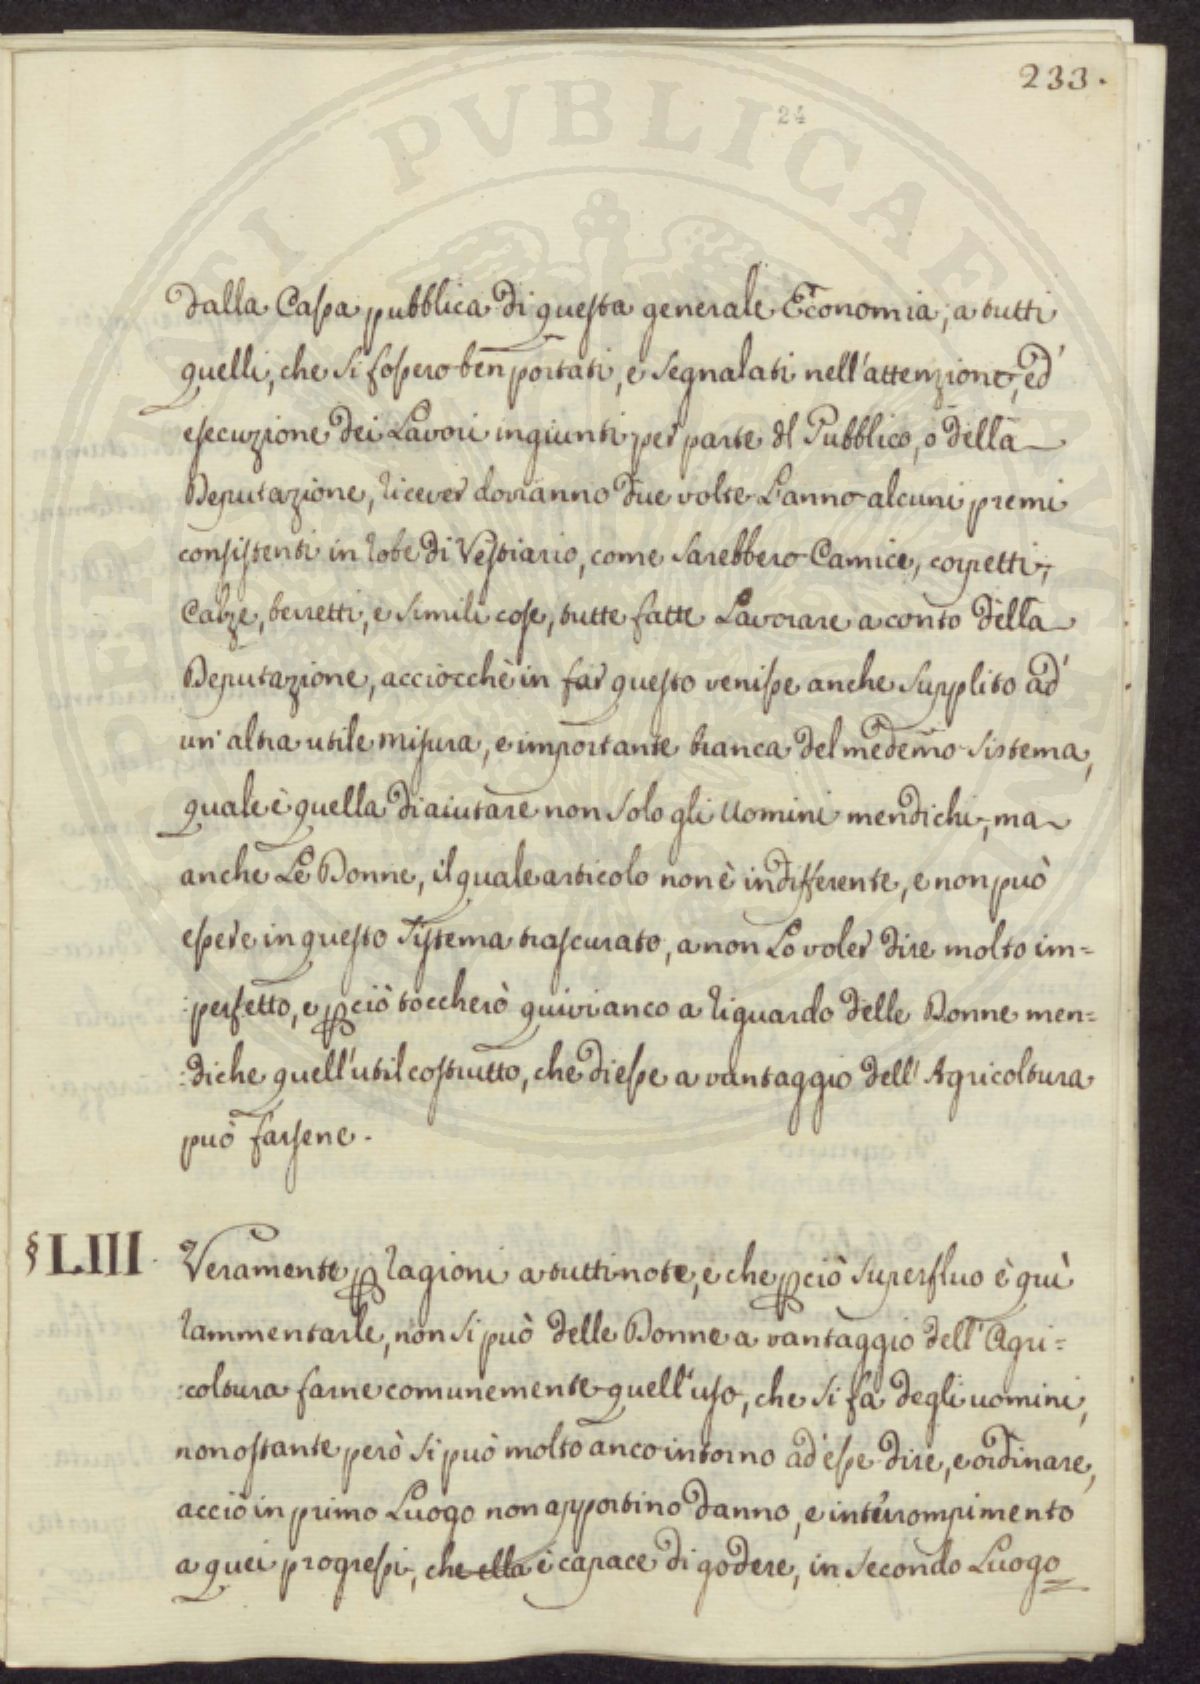 233.
24
dalla Cassa pubblica di questa generale Economia, a tutti
quelli, che si fossero ben portati, e segnalati nell'attenzione, ed
esecuzione dei Lavori ingiunti per parte dl Pubblico, o della
Deputazione, ricever dovranno due volte L'anno alcuni premi
consistenti in robe di Vestiario, come sarebbero Camice, corpetti,
Calze, berretti, e simili cose, tutte fatte Lavorare a conto della
Deputazione, acciocchè in far questo venisse anche supplito ad
un' altra utile misura, e importante branca del medemo sistema,
quale è quella di aiutare non solo gli Uomini mendichi, ma
anche Le Donne, il quale articolo non è indifferente, e non può
essere in questo Sistema trascurato, a non Lo voler dire molto im=
:perfetto, e perciò toccherò quivi anco a riguardo delle Donne men=
:diche quell'util costrutto, che di esse a vantaggio dell' Agricoltura
può farsene.
§ LIII. Veramente per ragioni a tutti note, e che perciò superfluo è quì
rammentarle, non si può delle Donne a vantaggio dell' Agri=
:coltura farne comunemente quell'uso, che si fa degli uomini,
nonostante però si può molto anco intorno ad esse dire, e ordinare,
acciò in primo Luogo non apportino danno, e interrompimento
a quei progressi, che ella è capace di godere, in secondo Luogo
PERVSTI PVBLICAE